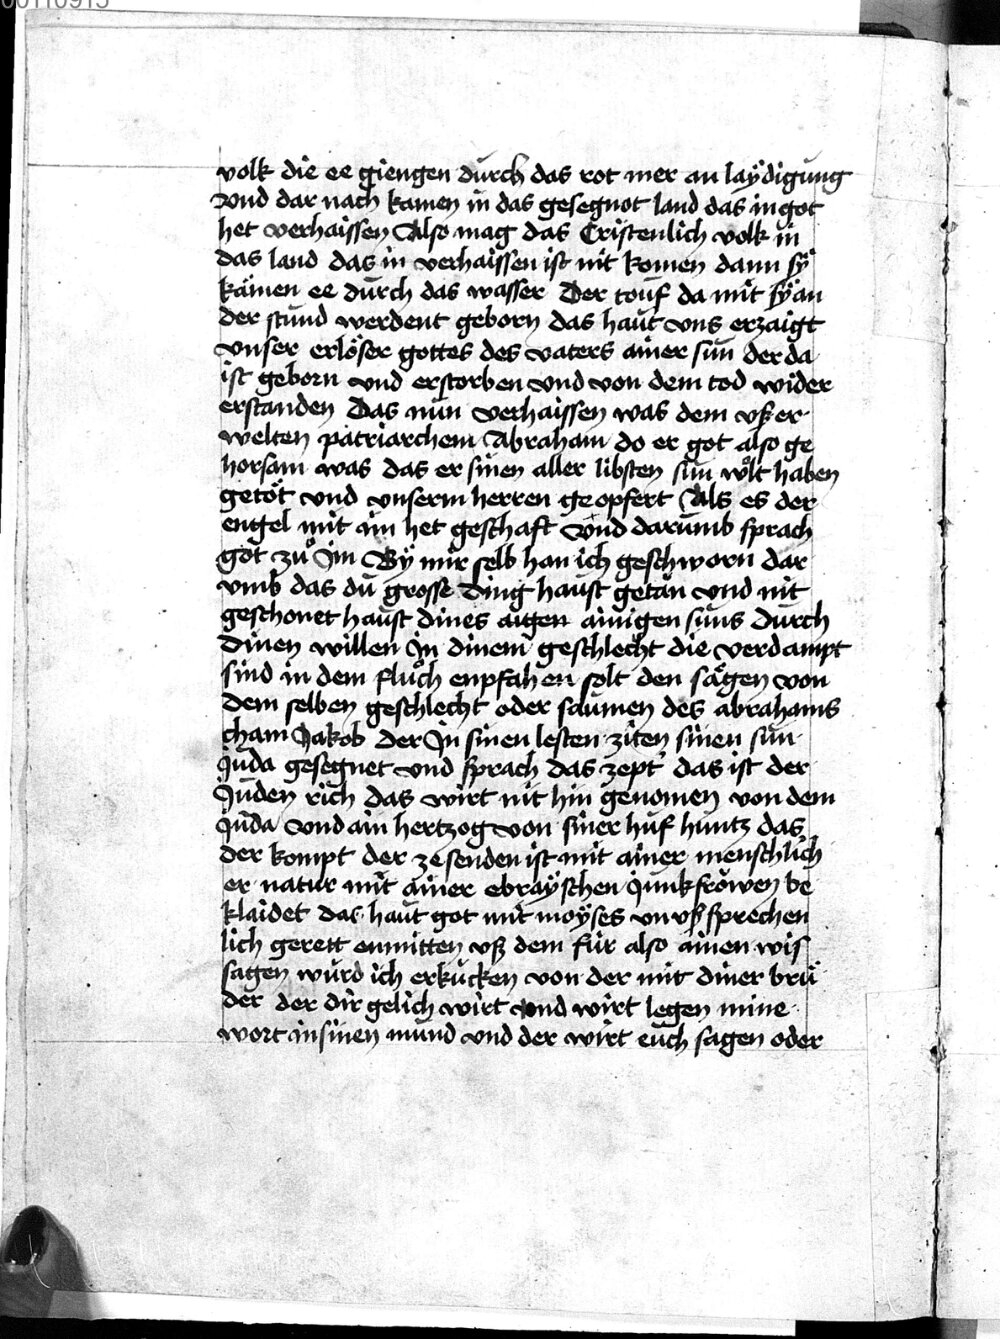 00110915
volk die ee giengen durch das rot mer an laÿdigung
vnd dar nach kamen in das gesegnot land das in got
het verhaissen Also mag das Cristenlich volk in
das land das in verhaissen ist nit komen dann sÿ
kämen ee durch das wasser Der touf da mit sÿ an
der stund werdent geborn das haut vns erzaigt
vnser erlöser gottes des vaters ainer sun der da
ist geborn vnd erstorben vnd von dem tod wider
erstanden Das nun verhaissen was dem vßer
welten patriarchem Abraham do er got also ge
horsam was das er sinen aller libsten sun wolt haben
getöt vnd vnserm herren geopfert Als es der
engel mit im het geschaft vnd darumb sprach
got zuͦ Im Bÿ mir selb han ich geschworn dar
vmb das du grosse Ding haust getän vnd nit
geschonet haust dines aigen ainigen suns durch
Dinen willen In dinem geschlecht die verdampt
sind in dem fluͦch enpfahen solt den sägen von
dem selben geschlecht oder saumen des abrahams
cham Jakob der In sinen lesten ziten sinen sun
Juda gesegnet vnd sprach das zept' das ist der
Juden rich das wirt nit hin genomen von dem
Juda vnd ain hertzog von siner huf huntz das
der kompt der ze senden ist mit ainer menschlich
er natur mit ainer ebraÿschen Junkfröwen be
klaidet das haut got mit moÿses vnvßsprechen
lich gerett enmitten vß dem für also ainen wis
sagen würd ich erkücken von der mit diner brü
der der dir gelich wirt vnd wirt legen mine
wort in sinen mund vnd der wirt euch sagen oder